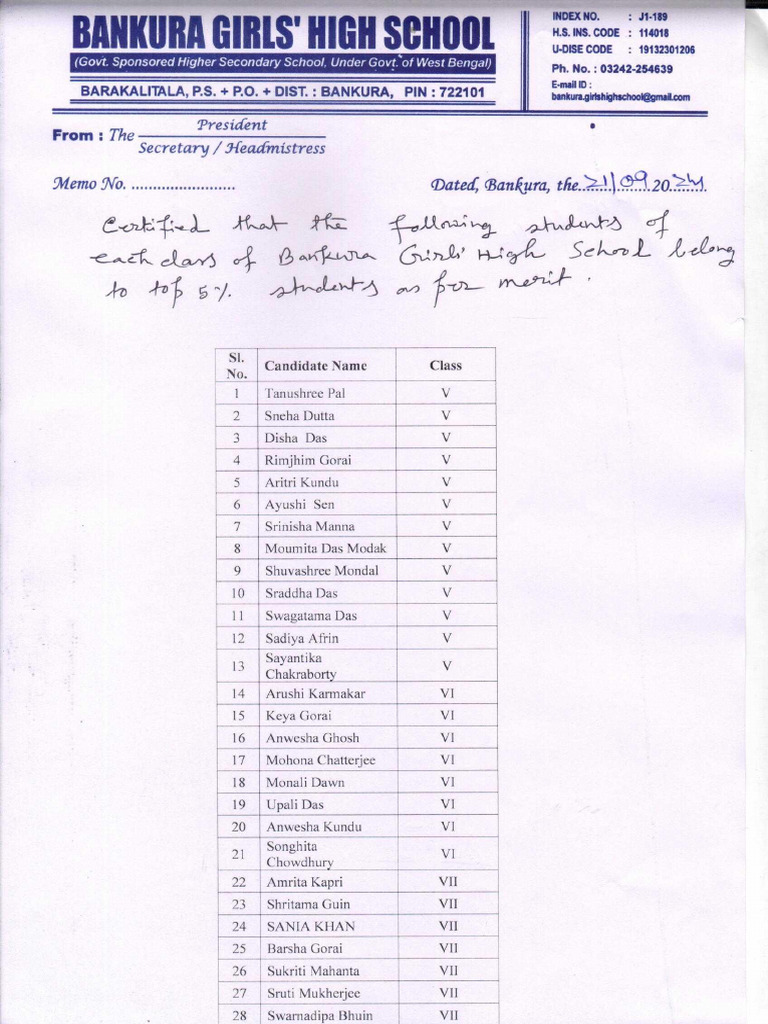 BANKURA GIRLS' HIGH SCHOOL
(Govt. Sponsored Higher Secondary School, Under Govt. of West Bengal)
BARAKALITALA, P.S. + P.O. + DIST. : BANKURA, PIN : 722101
INDEX NO. : J1-189
H.S. INS. CODE : 114018
U-DISE CODE : 19132301206
Ph. No. : 03242-254639
E-mail ID :
bankura.girlshighschool@gmail.com
From : The President
Secretary / Headmistress
Memo No. ........................ Dated, Bankura, the 21/09 2024
Certified that the following students of
each class of Bankura Girls' High School belong
to top 5% students as per merit.
Sl. No. Candidate Name Class
1 Tanushree Pal V
2 Sneha Dutta V
3 Disha Das V
4 Rimjhim Gorai V
5 Aritri Kundu V
6 Ayushi Sen V
7 Srinisha Manna V
8 Moumita Das Modak V
9 Shuvashree Mondal V
10 Sraddha Das V
11 Swagatama Das V
12 Sadiya Afrin V
13 Sayantika Chakraborty V
14 Arushi Karmakar VI
15 Keya Gorai VI
16 Anwesha Ghosh VI
17 Mohona Chatterjee VI
18 Monali Dawn VI
19 Upali Das VI
20 Anwesha Kundu VI
21 Songhita Chowdhury VI
22 Amrita Kapri VII
23 Shritama Guin VII
24 SANIA KHAN VII
25 Barsha Gorai VII
26 Sukriti Mahanta VII
27 Sruti Mukherjee VII
28 Swarnadipa Bhuin VII